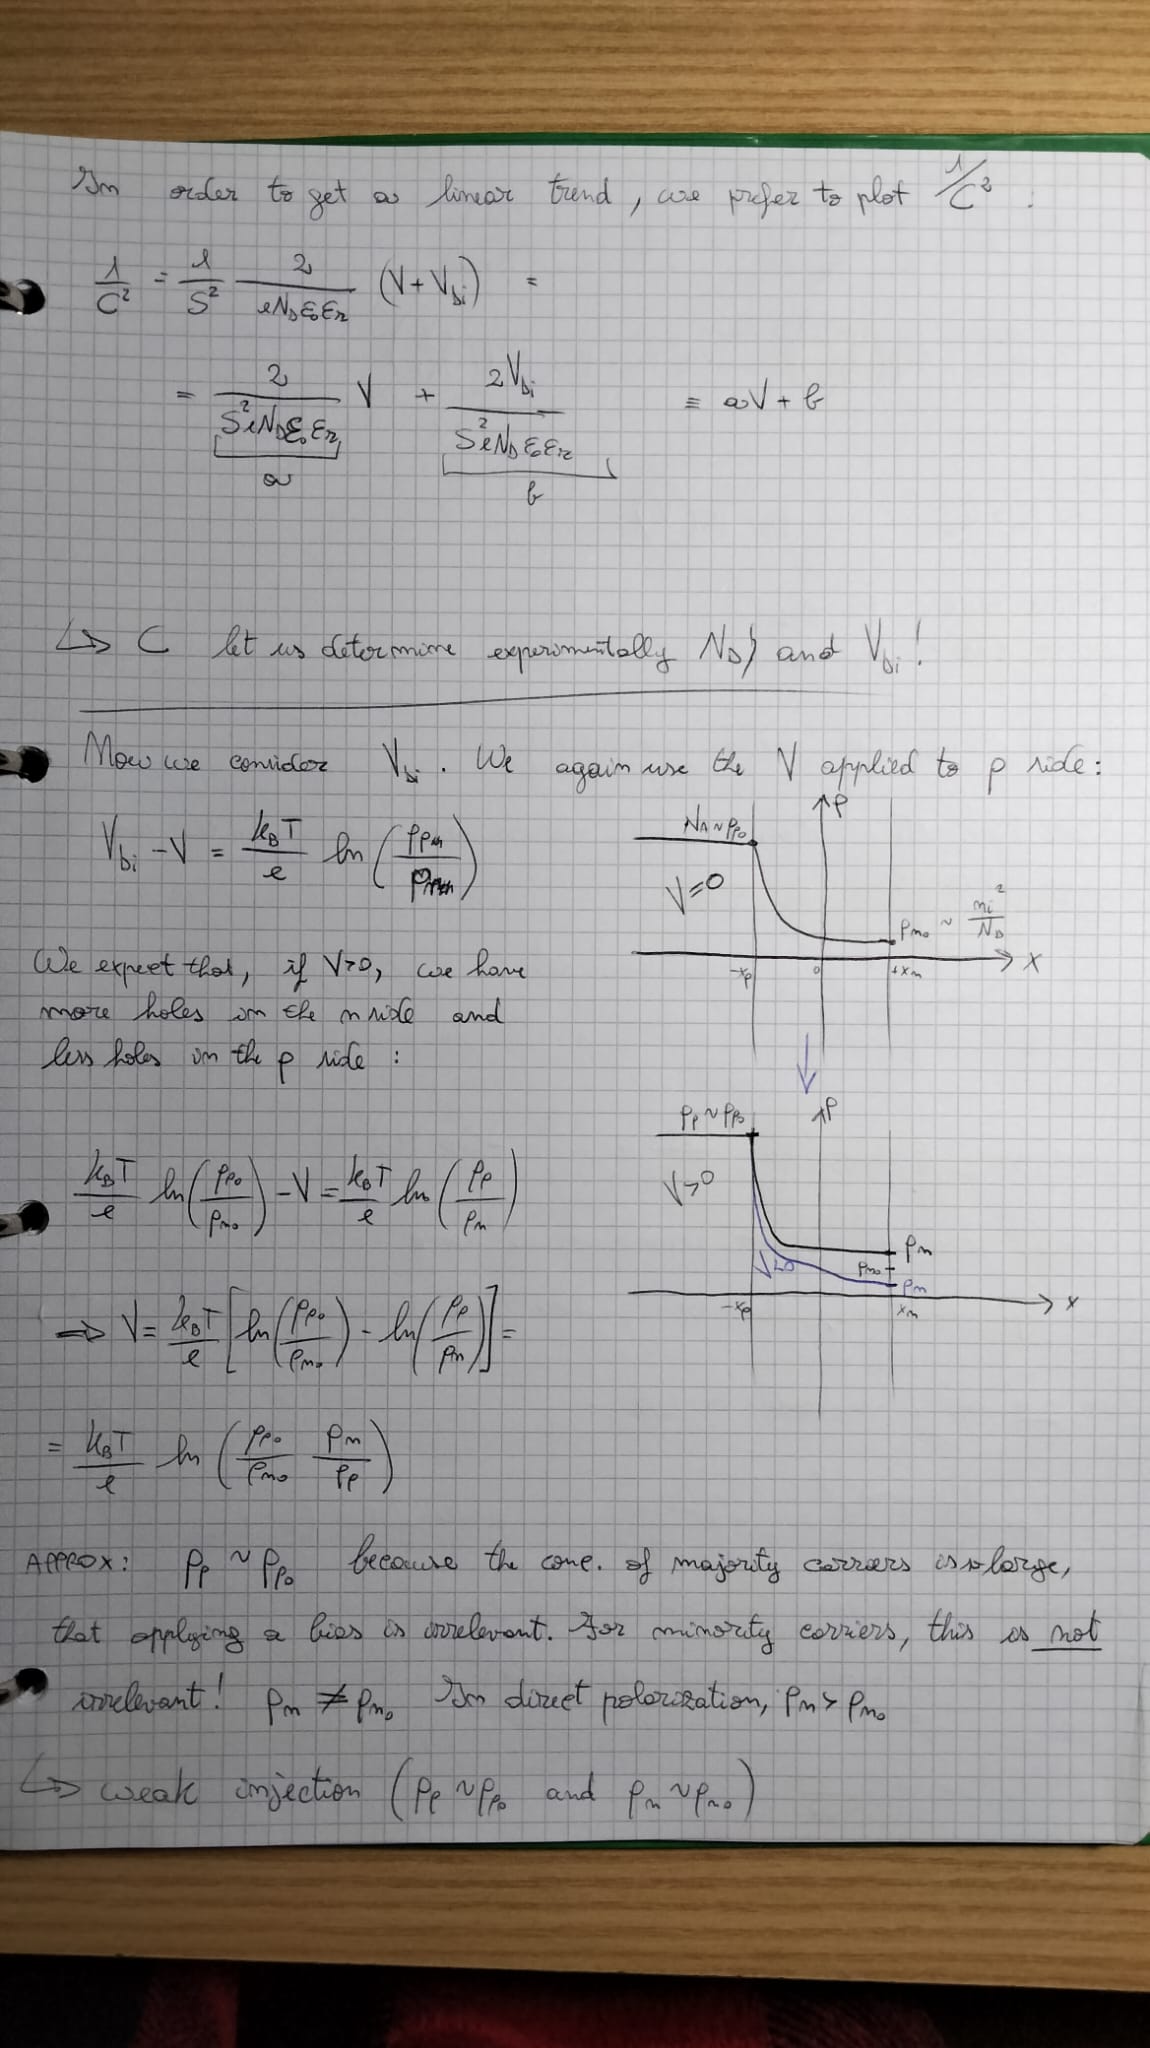 In order to get a linear trend, we prefer to plot 1/C² :
1/C² = 1/S² 2/(eN_Dε₀ε_r) (V + V_bi) =
= 2/(S²eN_Dε₀ε_r) V + 2V_bi/(S²eN_Dε₀ε_r) ≡ aV + b
a b
↳ C let us determine experimentally N_D) and V_bi!
Now we consider V_bi. We again use the V applied to p side:
V_bi - V = k_BT/e ln(p_p/p_n)
p
N_A ~ p_p0
V=0
p_n0 ~ n_i²/N_D
-x_p 0 +x_n x
We expect that, if V>0, we have
more holes in the n side and
less holes in the p side :
p_p ~ p_p0 p
V>0
p_n
V<0 p_n0
p_n
-x_p x_n x
k_BT/e ln(p_p0/p_n0) - V = k_BT/e ln(p_p/p_n)
⇒ V = k_BT/e [ln(p_p0/p_n0) - ln(p_p/p_n)] =
= k_BT/e ln(p_p0/p_n0 p_n/p_p)
APPROX: p_p ~ p_p0 because the conc. of majority carriers is so large,
that applying a bias is irrelevant. For minority carriers, this is not
irrelevant! p_n ≠ p_n0 In direct polarization, p_n > p_n0
↳ weak injection (p_p ~ p_p0 and p_n ~ p_n0)